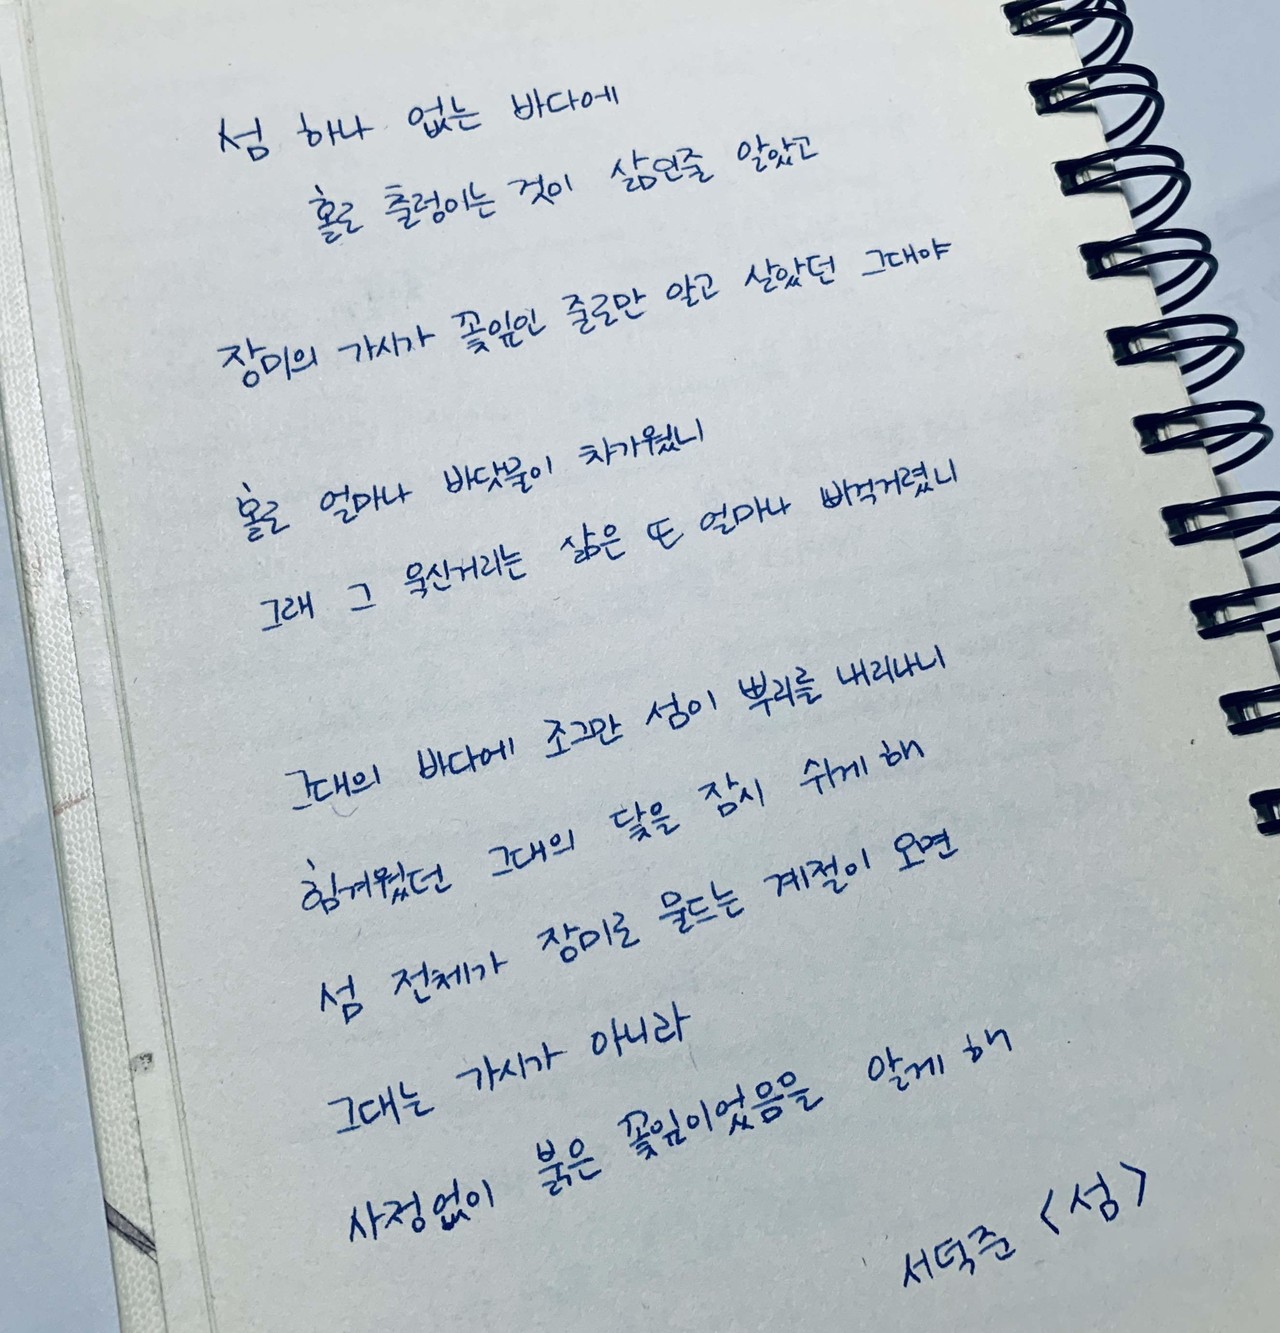 섬 하나 없는 바다에
홀로 출렁이는 것이 삶인줄 알았고
장미의 가시가 꽃잎인 줄로만 알고 살았던 그대야
홀로 얼마나 바닷물이 차가웠니
그래 그 욱신거리는 삶은 또 얼마나 삐걱거렸니
그대의 바다에 조그만 섬이 뿌리를 내리나니
힘겨웠던 그대의 닻을 잠시 쉬게 해
섬 전체가 장미로 물드는 계절이 오면
그대는 가시가 아니라
사정없이 붉은 꽃잎이었음을 알게 해
서덕준 <섬>